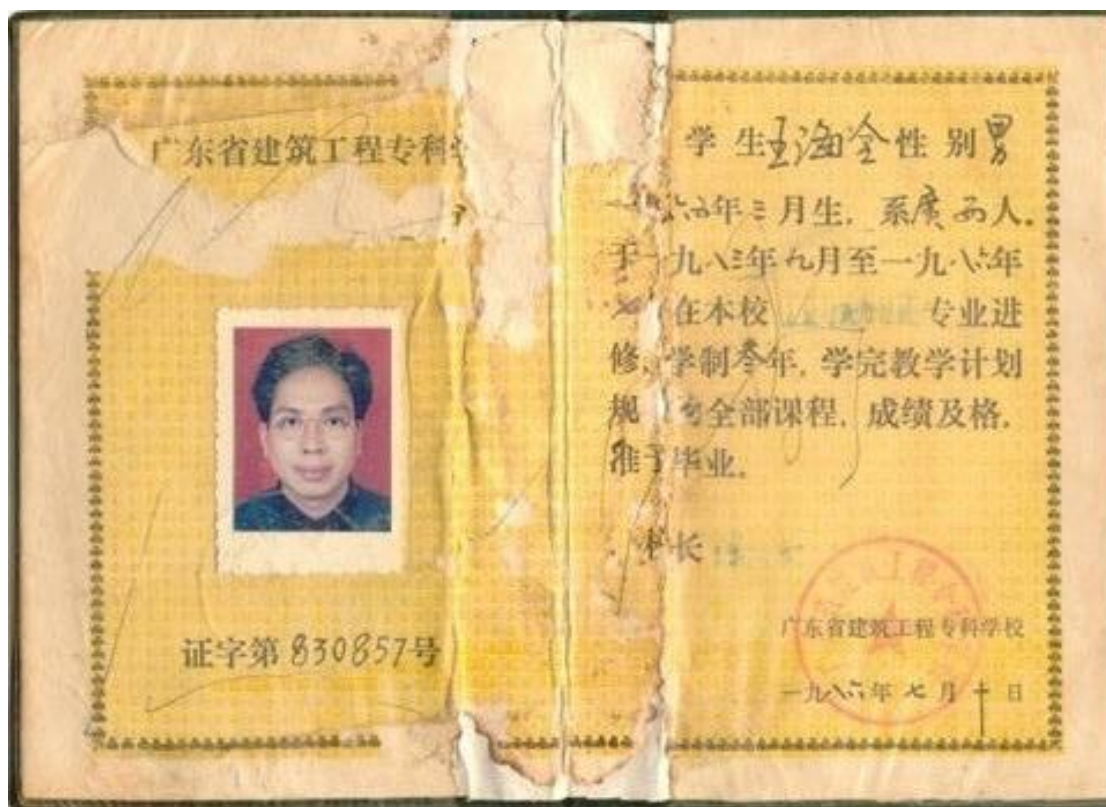 广东省建筑工程专科
证字第830857号
学生王海全性别男
六四年三月生，系廣西人。
于一九八三年九月至一九八六年
在本校 专业进
修，学制叁年，学完教学计划
规 全部课程，成绩及格，
准予毕业。
长
广东省建筑工程专科学校
一九八六年七月十日